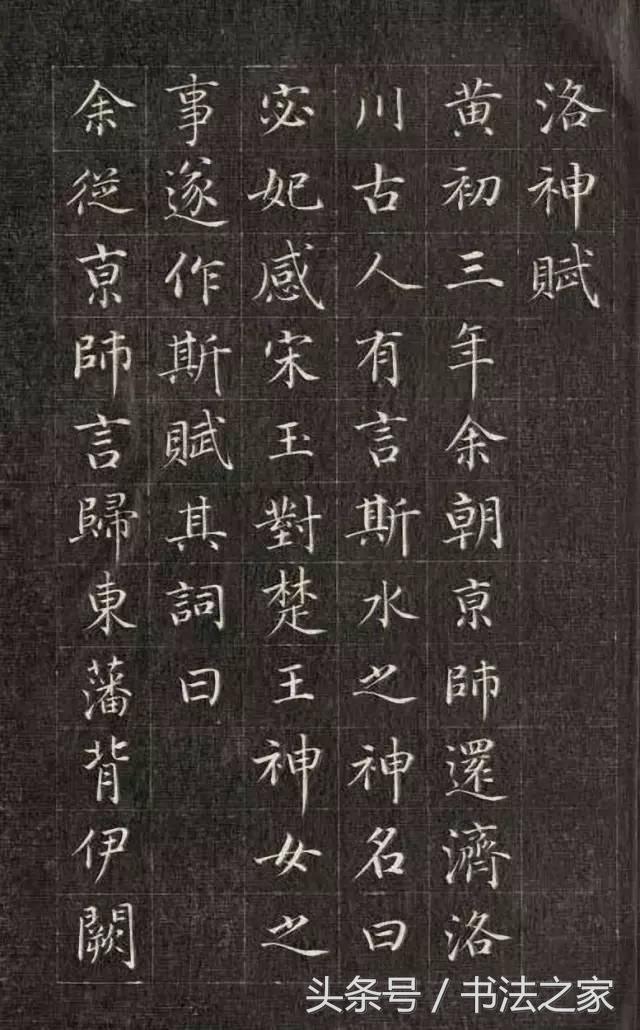 洛神賦
黄初三年余朝亰師還濟洛
川古人有言斯水之神名曰
宓妃感宋玉對楚王神女之
事遂作斯賦其詞曰
余從亰師言歸東藩背伊闕
头条号 / 书法之家